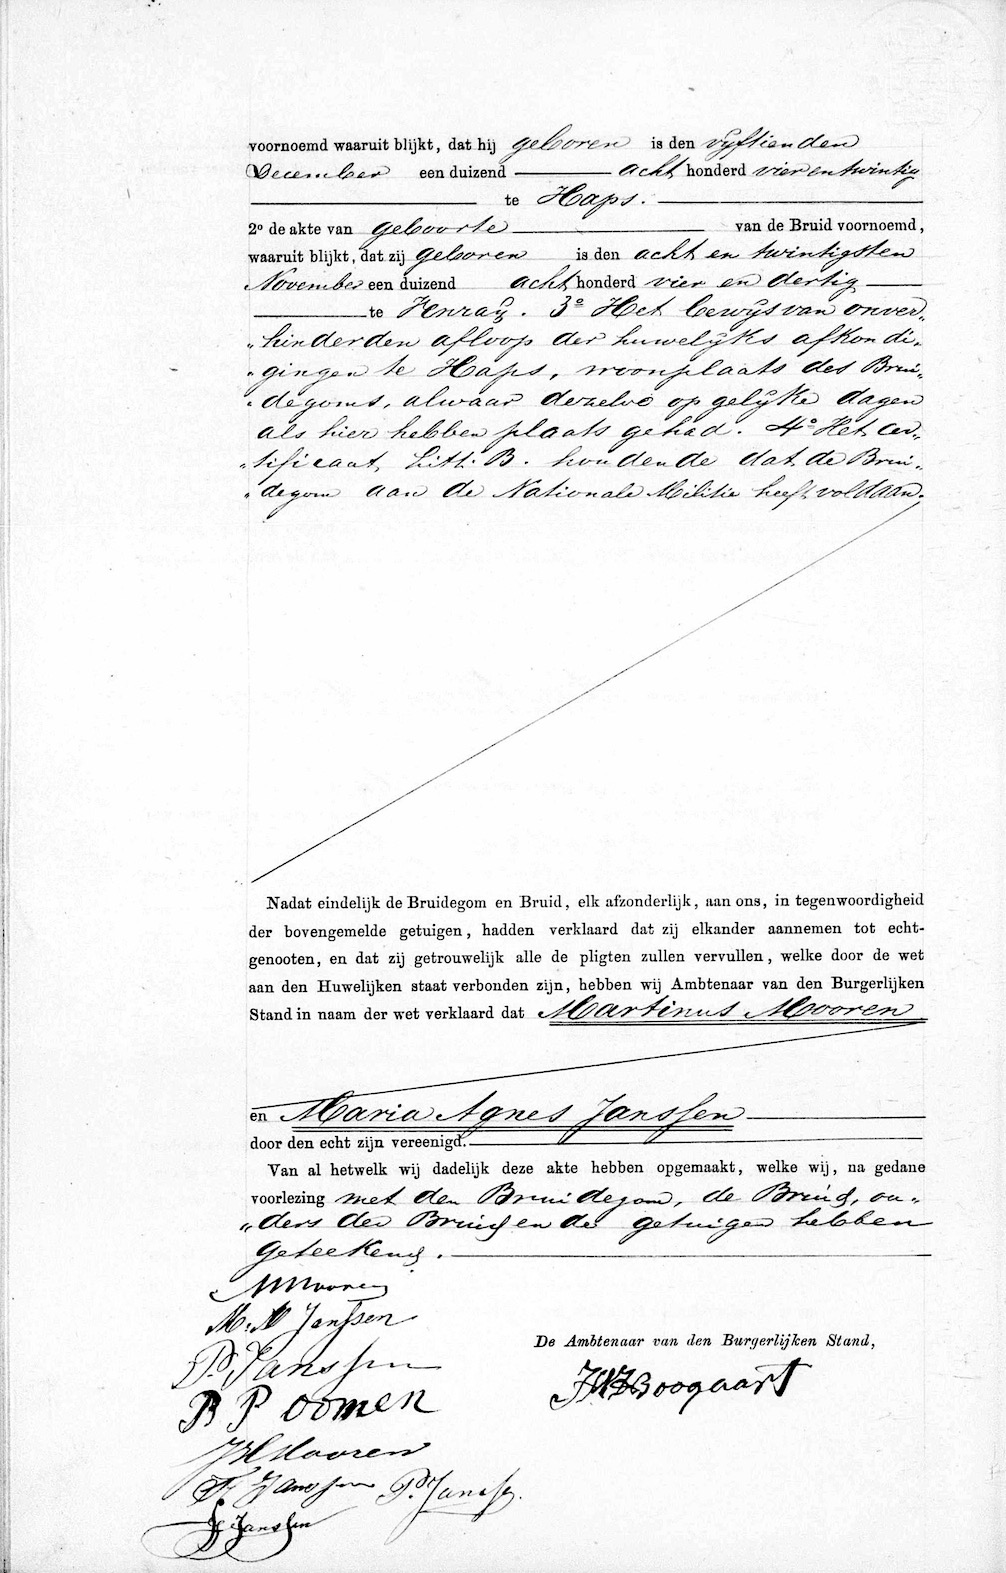 voornoemd waaruit blijkt, dat hij geboren is den vijftienden
December een duizend acht honderd vier en twintig
te Haps.
2º de akte van geboorte van de Bruid voornoemd,
waaruit blijkt, dat zij geboren is den acht en twintigsten
November een duizend acht honderd vier en dertig
te Venray. 3º Het bewijs van onver„
„hinderden afloop der huwelijks afkondi„
„gingen te Haps, woonplaats des Brui„
„degoms, alwaar dezelve op gelijke dagen
als hier hebben plaats gehad. 4º Het cer„
„tificaat, Litt: B. houdende dat de Brui„
„degom aan de Nationale Militie heeft voldaan.
Nadat eindelijk de Bruidegom en Bruid, elk afzonderlijk, aan ons, in tegenwoordigheid
der bovengemelde getuigen, hadden verklaard dat zij elkander aannemen tot echt-
genooten, en dat zij getrouwelijk alle de pligten zullen vervullen, welke door de wet
aan den Huwelijken staat verbonden zijn, hebben wij Ambtenaar van den Burgerlijken
Stand in naam der wet verklaard dat Martinus Mooren
en Maria Agnes Janssen
door den echt zijn vereenigd.
Van al hetwelk wij dadelijk deze akte hebben opgemaakt, welke wij, na gedane
voorlezing met den Bruidegom, de Bruid, ou„
„ders der Bruid en de getuigen hebben
geteekend.
M Mooren
M: A Janssen
P. Janssen
De Ambtenaar van den Burgerlijken Stand,
Boogaart
P Oomen
JH Mooren
Janssen P. Janssen
Janssen